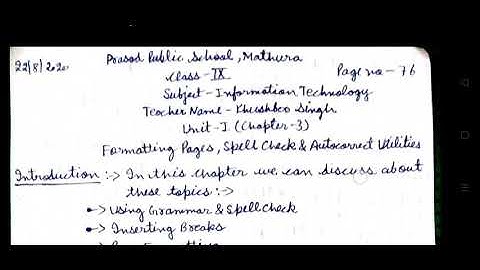 22/8/2020 Prasad Public School, Mathura
Class - IX Page no - 76
Subject - Information Technology
Teacher Name - Khushboo Singh
Unit - I (Chapter-3)
Formatting Pages, Spell Check & Autocorrect Utilities
Introduction :-> In this chapter we can discuss about
these topics :->
•-> Using Grammar & Spell Check
•-> Inserting Breaks